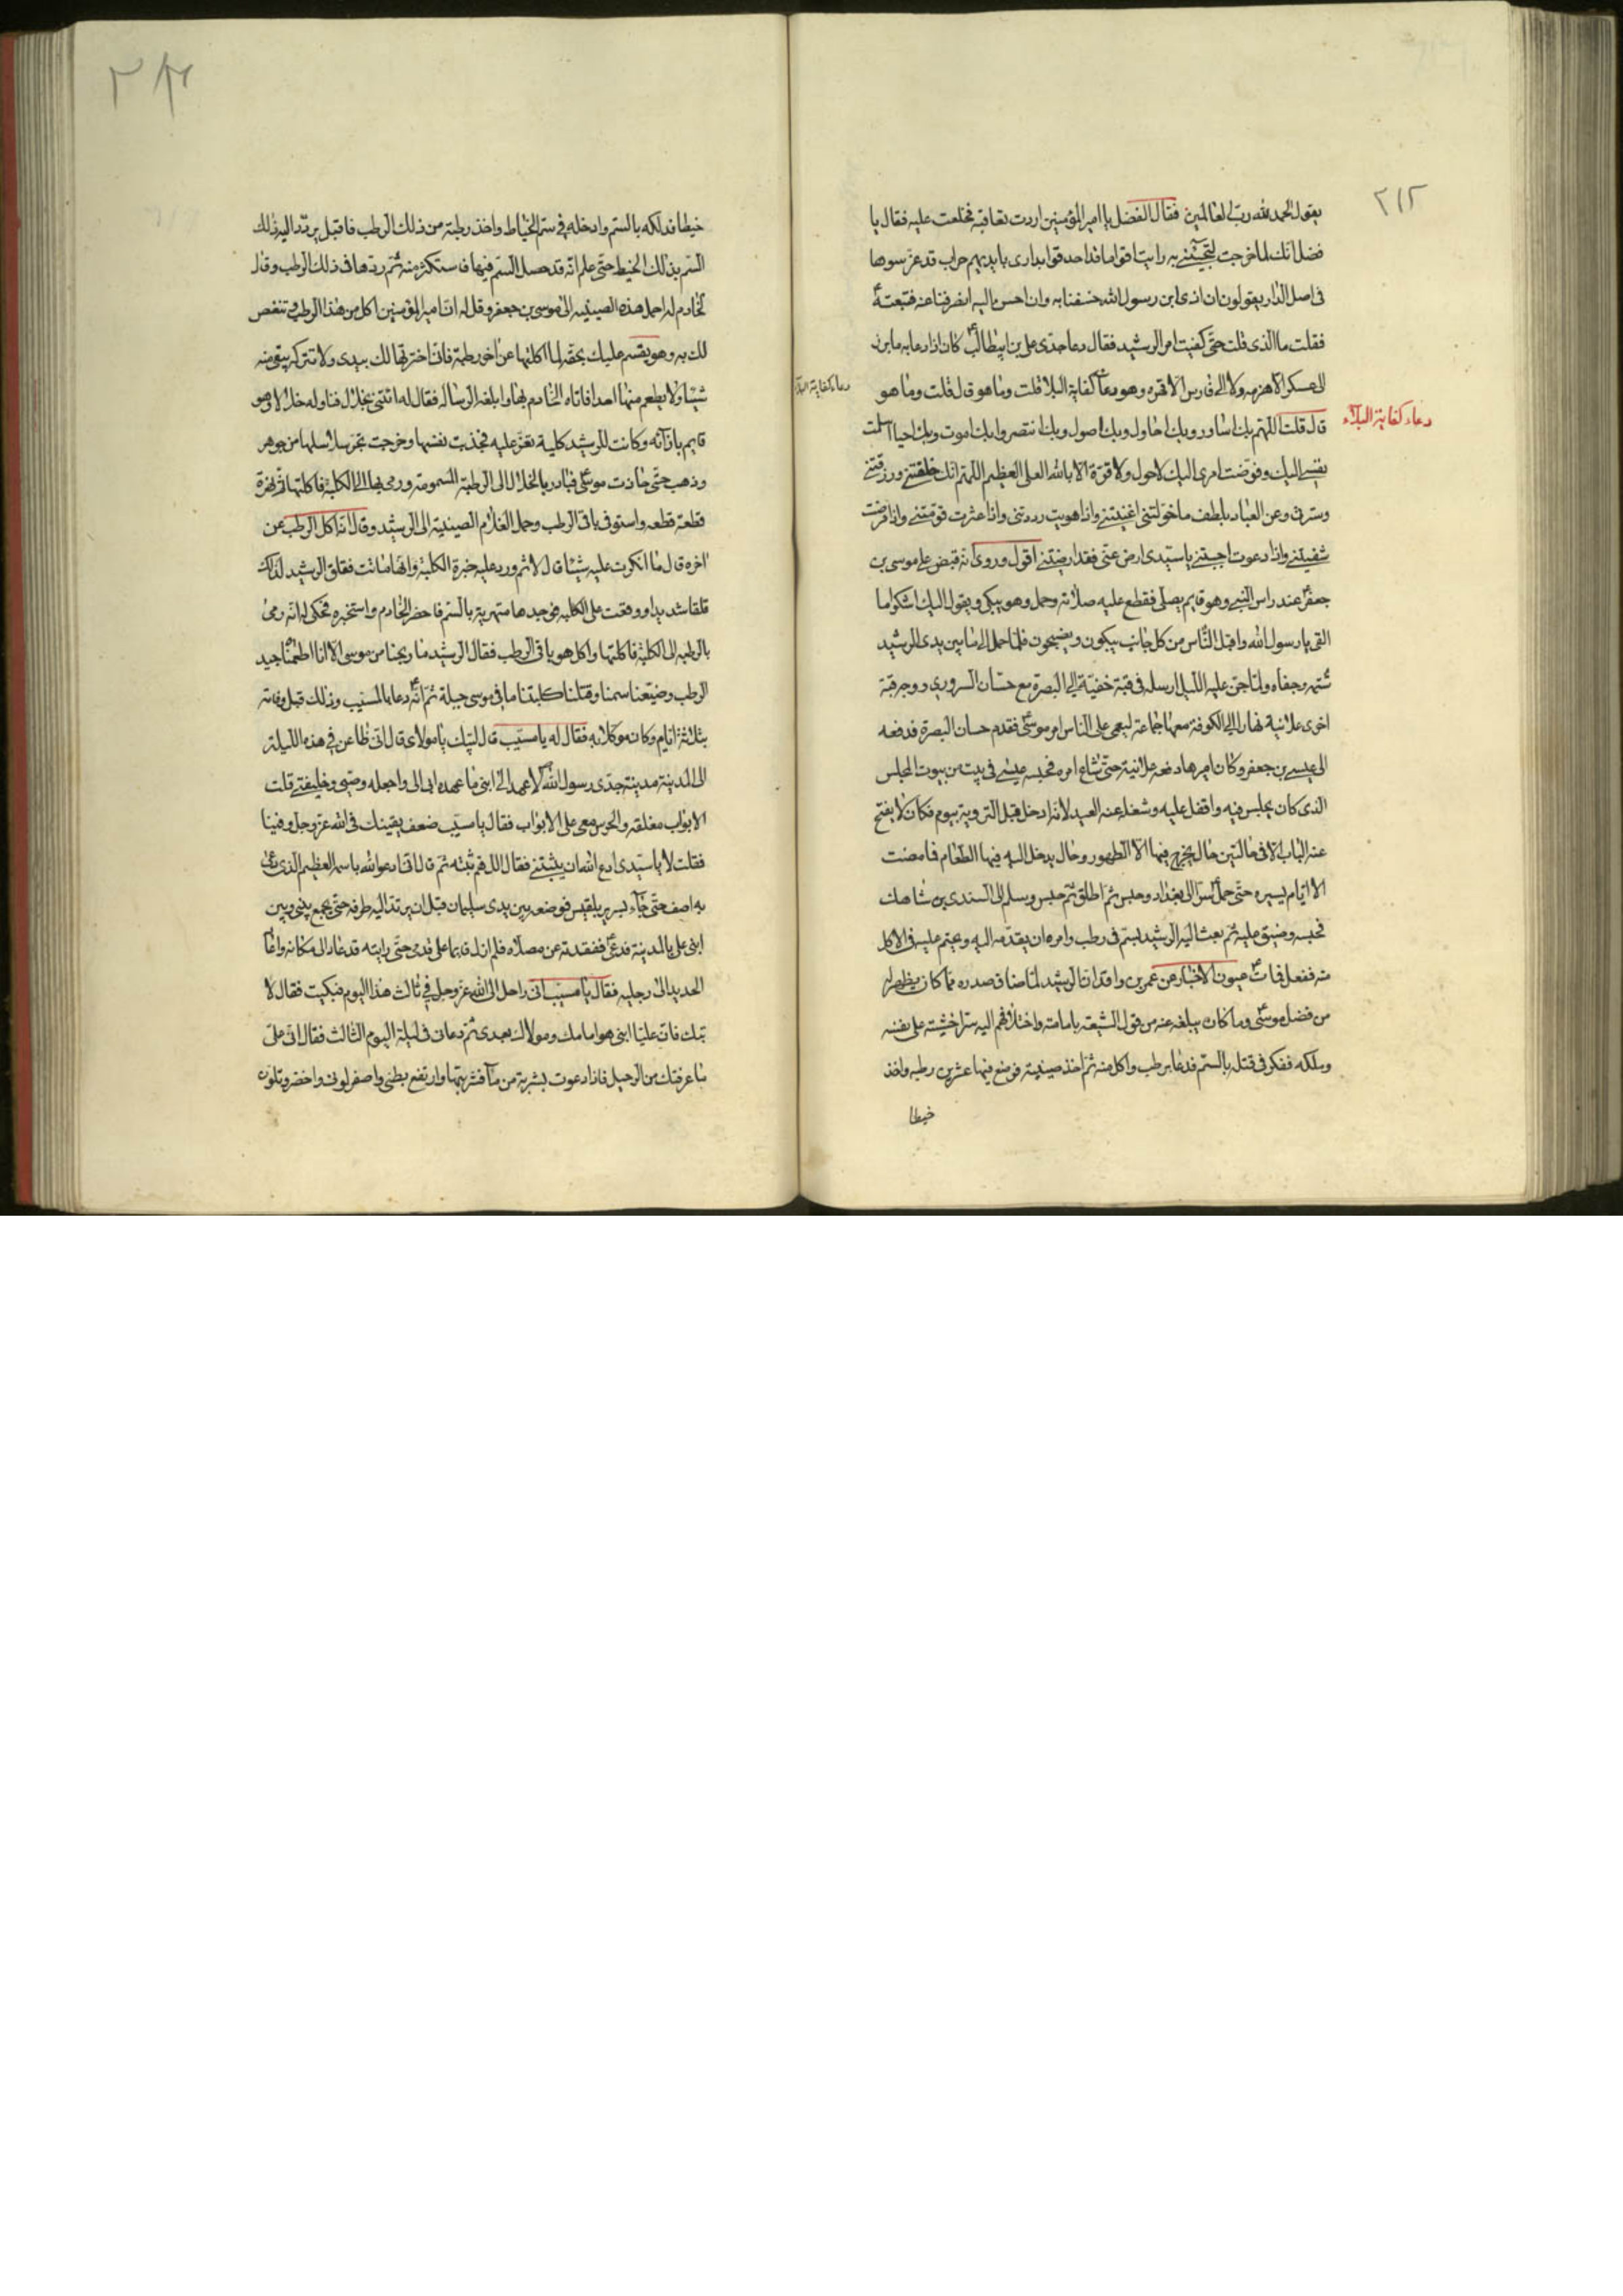 ٢١٢
يقول الحمد لله رب العالمين فقال الفضل يا امير المؤمنين اردت تعاقبه فخلعت عليه فقال يا
فضل انك لما خرجت لتجيئني به رايت اقواما قد احدقوا بداري بايديهم حراب قد غرسوها
في اصل الدار يقولون ان اذى ابن رسول الله خسفنا به وان احسن اليه انصرفنا عنه فتبعته
فقلت ما الذي قلت حتى كفيت امر الرشيد فقال دعا جدي علي بن ابيطالب كان اذا دعا به ما برز
الى عسكر الا هزمه ولا الى فارس الا قهره وهو دعا كفاية البلا قلت وما هو قال قلت وما هو
دعاء كفاية البلاء
دعاء كفاية البلاء
قال قلت اللهم بك اساور وبك احاول وبك اصول وبك انتصر وبك اموت وبك احيا اسلمت
نفسي اليك وفوضت امري اليك لاحول ولا قوة الا بالله العلي العظيم اللهم انك خلقتني ورزقتني
وسترتني وعن العباد بلطف ما خولتني اغنيتني واذا هويت رددتني واذا عثرت قومتني واذا مرضت
شفيتني واذا دعوت اجبتني يا سيدي ارض عني فقد ارضيتني اقول وروى انه قبض على موسى بن
جعفر عند راس النبي وهو قايم يصلي فقطع عليه صلاته وحمل وهو يبكي ويقول اليك اشكو ما
القى يا رسول الله واقبل الناس من كل جانب يبكون ويضجون فلما حمل الى ما بين يدي الرشيد
شتمه وجفاه ولما جن عليه الليل ارسله في قبة خفية الى البصرة مع حسان السروري ووجه قبة
اخرى علانية نهارا الى الكوفة معها جماعة ليعمى على الناس امر موسى فقدم حسان البصرة فدفعه
الى عيسى بن جعفر وكان امرها دفعه علانية حتى شاع امره فحبسه عيسى في بيت من بيوت المجلس
الذي كان يجلس فيه واقفل عليه وشغله عنه العيد لانه ادخل قبل التروية بيوم فكان لا يفتح
عنه الباب الا في حالتين حال يخرج فيها الا الطهور وحال يدخل اليه فيها الطعام فما مضت
الا ايام يسيره حتى حمل سرا الى بغداد وحبس ثم اطلق ثم حبس وسلم الى السندي بن شاهك
فحبسه وضيق عليه ثم بعث اليه الرشيد بسم في رطب وامره ان يقدمه اليه ويحتم عليه في الاكل
منه ففعل فمات عيون الاخبار عن عمر بن واقد ان الرشيد لما ضاق صدره مما كان يظهر له
من فضل موسى وما كان يبلغه عنه من قول الشيعة بامامته واختلافهم اليه سرا خشية على نفسه
وملكه ففكر في قتله بالسم فدعا برطب واكل منه ثم اخذ صينية فوضع فيها عشرين رطبه واخذ
خيطا
خيطا فدلكه بالسم وادخله في سم الخياط واخذ رطبة من ذلك الرطب فاقبل يردد اليه ذلك
السم بذلك الخيط حتى علم انه قد حصل السم فيها فاستكثر منه ثم ردها في ذلك الرطب وقال
لخادم له احمل هذه الصينية الى موسى بن جعفر وقل له ان امير المؤمنين اكل من هذا الرطب وتنغص
لك به وهو يقسم عليك بحقه لما اكلتها عن اخر رطبة فاني اخترتها لك بيدي ولا تتركه يبقى منه
شيئا ولا يطعم منها احدا فاتاه الخادم بها وابلغه الرسالة فقال له ائتني بخلال فناوله خلالا وهو
قايم بازائه وكانت للرشيد كلبة تعز عليه فجذبت نفسها وخرجت تجر سلاسلها من جوهر
وذهب حتى حاذت موسى فبادر بالخلال الى الرطبة المسمومة ورمى بها الى الكلبة فاكلتها
قطعة قطعه واستوفى باقى الرطب وحمل الغلام الصينية الى الرشيد وقال انه اكل الرطب عن
اخره قال ما انكرت عليه شيئا قال لا ثم ورد عليه خبرة الكلبة وانها ماتت فقلق الرشيد لذلك
قلقا شديدا ووقعت على الكلبه فوجدها متهرية بالسم فاحضر الخادم واستخبره فحكى له انه رمى
بالرطبه الى الكلبة فاكلتها واكل هو باقى الرطب فقال الرشيد ما ربحنا من موسى الا انا اطعمناه جيد
الرطب وضيعنا سمنا وقتلنا كلبتنا ما في موسى حيلة ثم انه دعا بالمسيب وذلك قبل وفاته
بثلاثة ايام وكان موكلا به فقال له يا مسيب قال لبيك يا مولاي قال اني ظاعن في هذه الليلة
الى المدينة مدينة جدي رسول الله لاعهد الى ابني ما عهده ابي الي واجعله وصيي وخليفتي قلت
الابواب مغلقه والحرس معي على الابواب فقال يا مسيب ضعف يقينك في الله عز وجل وفينا
فقلت لا يا سيدي ادع الله ان يثبتني فقال اللهم ثبته ثم قال اني ادعو الله باسمه العظيم الذي دعى
به اصف حتى جاء بسرير بلقيس فوضعه بين يدي سليمان قبل ان يرتد اليه طرفه حتى يجمع بيني وبين
ابني علي بالمدينة فدعى ففقدته عن مصلاه فلم ازل قايما على قدمي حتى رايته قد عاد الى مكانه واعاد
الحديد الى رجليه فقال يا مسيب اني راحل الى الله عز وجل في ثالث هذا اليوم فبكيت فقال لا
تبك فان عليا ابني هو امامك ومولاك بعدي ثم دعاني في ليلة اليوم الثالث فقال اني على
ما عرفتك من الرحيل فاذا دعوت بشربة من ماء فشربتها وارتفع بطني واصفر لوني واخضر وتلون